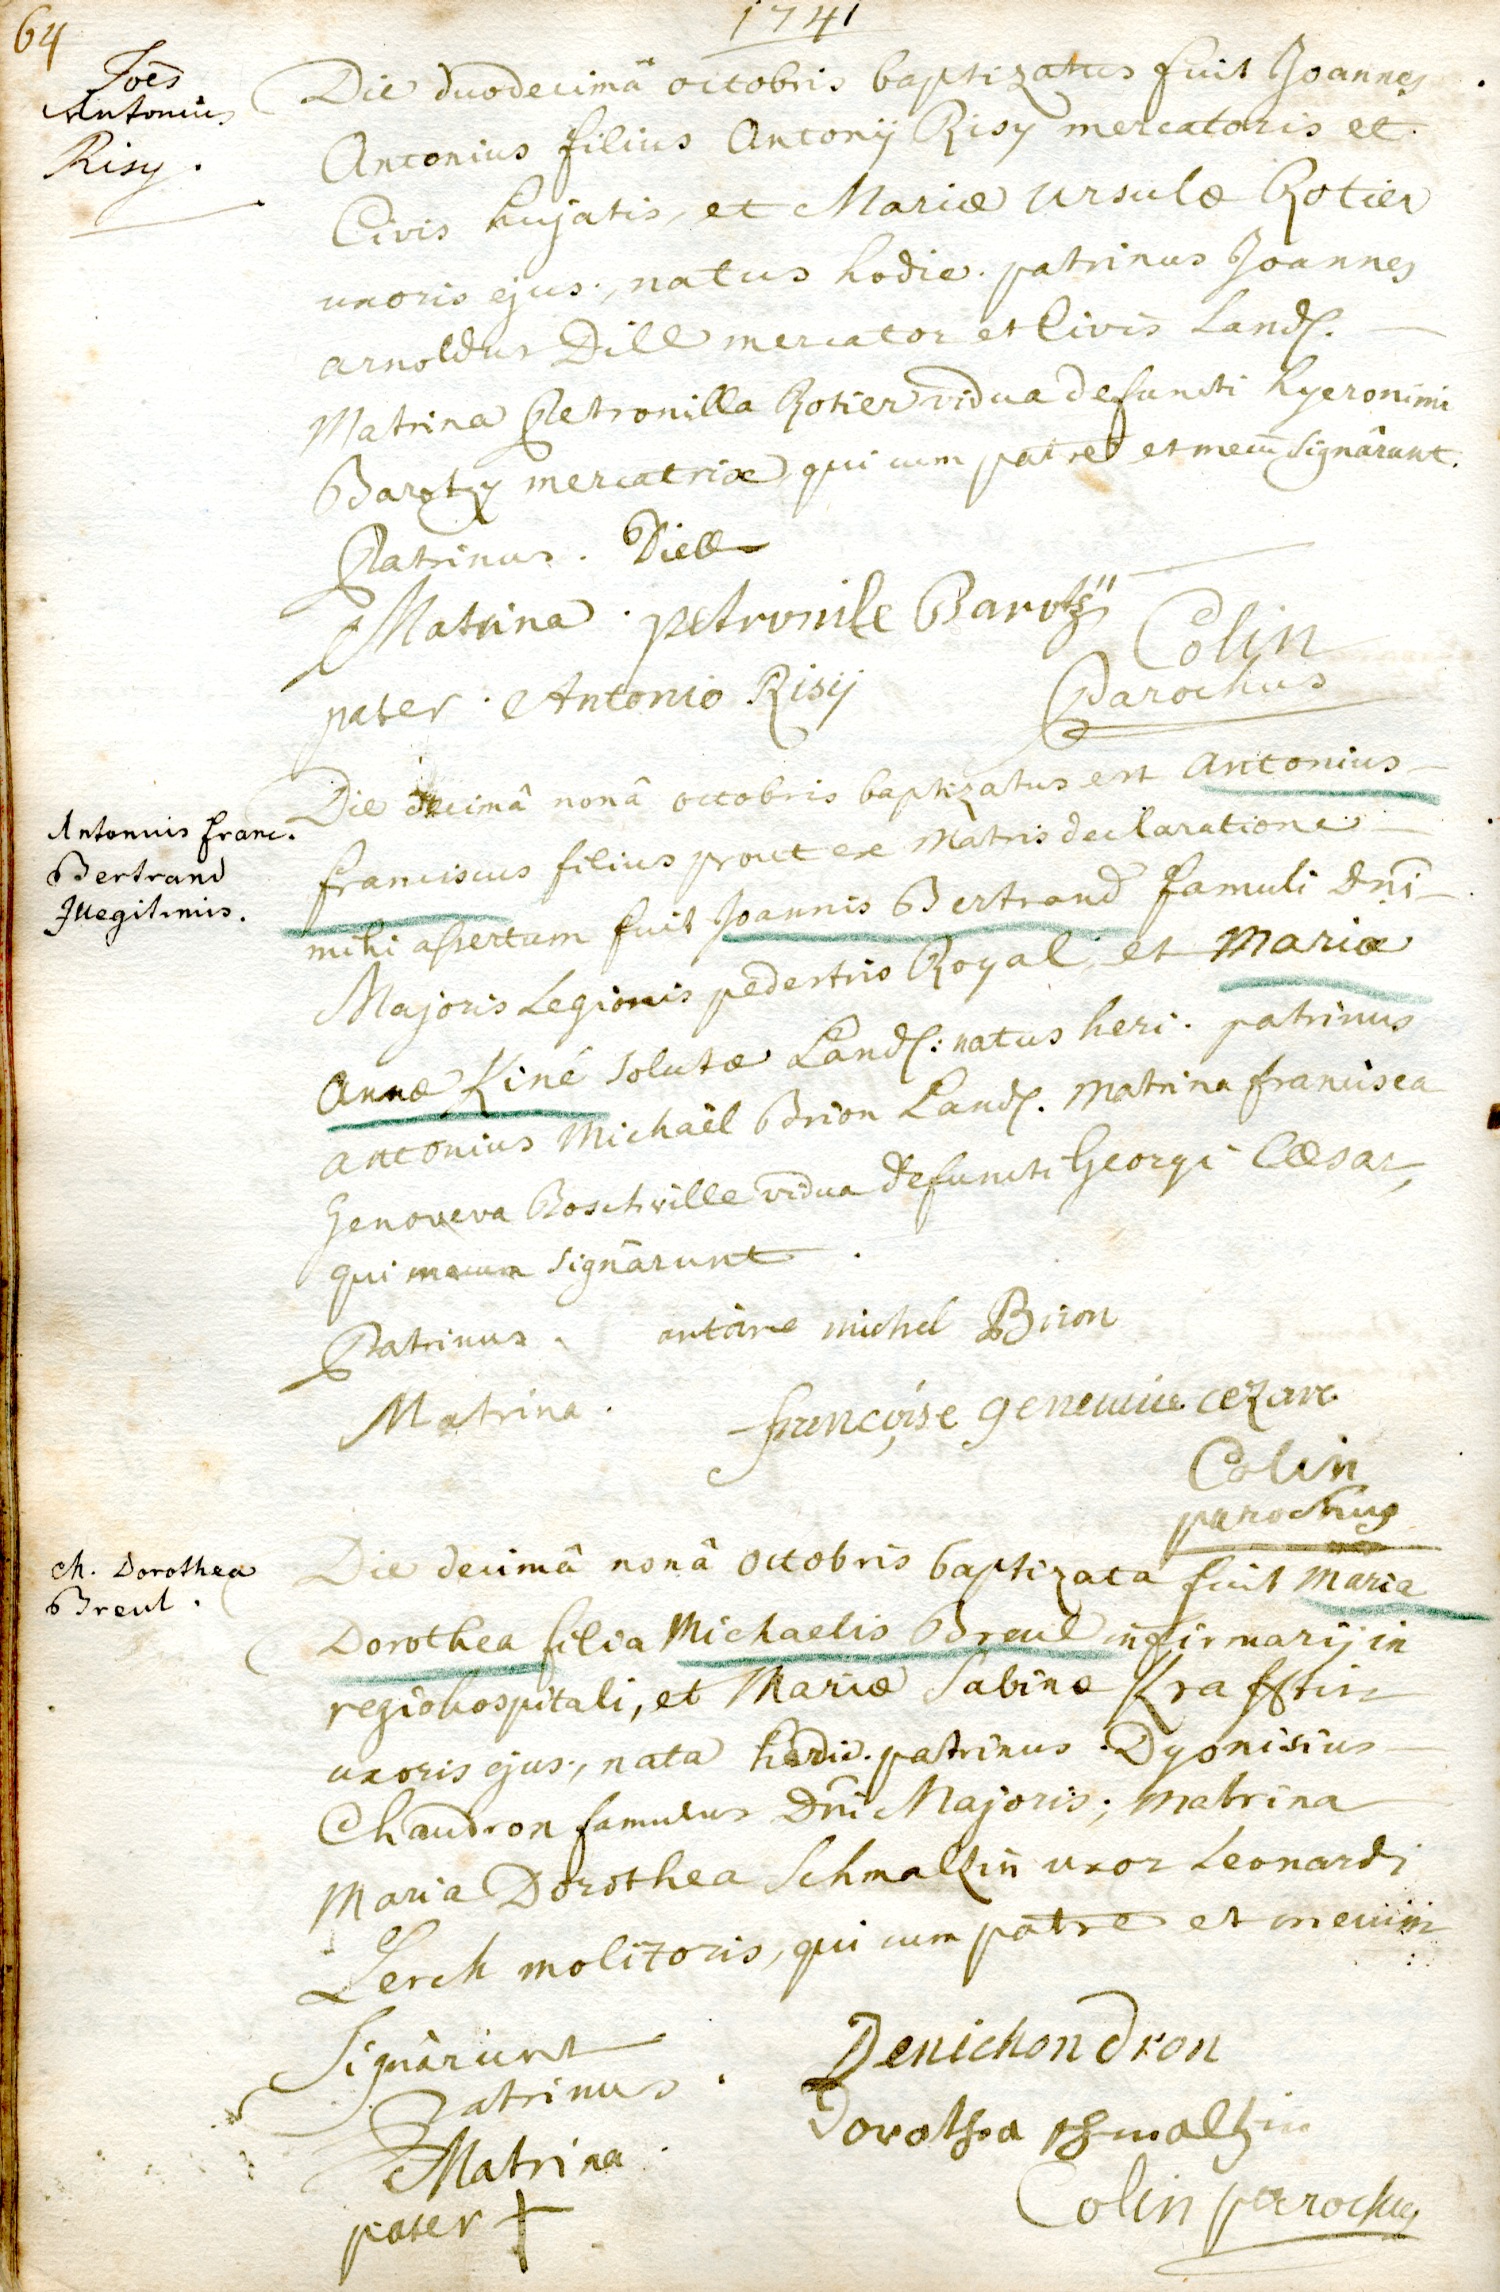 64
1741
Joēs
Antonius
Risy.
Die duodecimâ octobris baptizatus fuit Joannes
Antonius filius Antonij Risy mercatoris et
Civis hujatis, et Mariæ Ursulæ Rotier
uxoris ejus, natus hodie. patrinus Joannes
arnoldus Dill mercator et Civis Land.
Matrina Petronilla Rotier vidua defuncti hyeronimi
Barotzy mercatrix, qui cum patre et mecū signârunt.
Patrinus. Dill
Matrina. petronile Barotzÿ
Colin
Parochus
pater. Antonio Risÿ
Antonius franc.
Bertrand
Illegitimus.
Die decimâ nonâ octobris baptizatus est antonius
franciscus filius prout ex Matris declaratione
mihi assertum fuit Joannis Bertrand famuli dnī
Majoris Legionis pedestris Royal, et Mariæ
annæ Kiné solutæ Land: natus heri. patrinus
antonius Michaël Brion Land. Matrina francisca
Genoveva Boschville vidua defuncti Georgi Cæsar,
qui mecum signârunt.
Patrinus. antoine michel Biron
Matrina. francoise genevive cezare
Colin
parochus
M. Dorothea
Breul.
Die decimâ nonâ octobris baptizata fuit Maria
Dorothea filia Michaelis Breul infirmarij in
regio hospitali, et Mariæ Sabinæ Krafftin
uxoris ejus, nata hodie. patrinus Dyonisius
Chaudron famulus dnī Majoris; matrina
Maria Dorothea Schmaltzin uxor Leonardi
Lerch molitoris, qui cum patre et mecum
signârunt
Patrinus. Denichondron
Matrina. Dorothea schmaltzin
pater +
Colin parochus